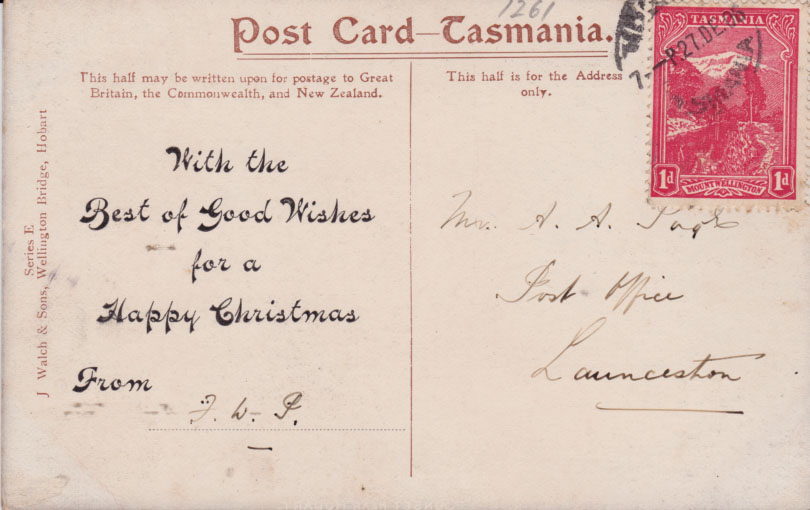 1261
Post Card—Tasmania.
This half may be written upon for postage to Great
Britain, the Commonwealth, and New Zealand.
This half is for the Address
only.
TASMANIA
27.DE
1d
MOUNT WELLINGTON
1d
Series E
J Walch & Sons, Wellington Bridge, Hobart
With the
Best of Good Wishes
for a
Happy Christmas
From
F. W. P.
Mr. A. A.
Post Office
Launceston